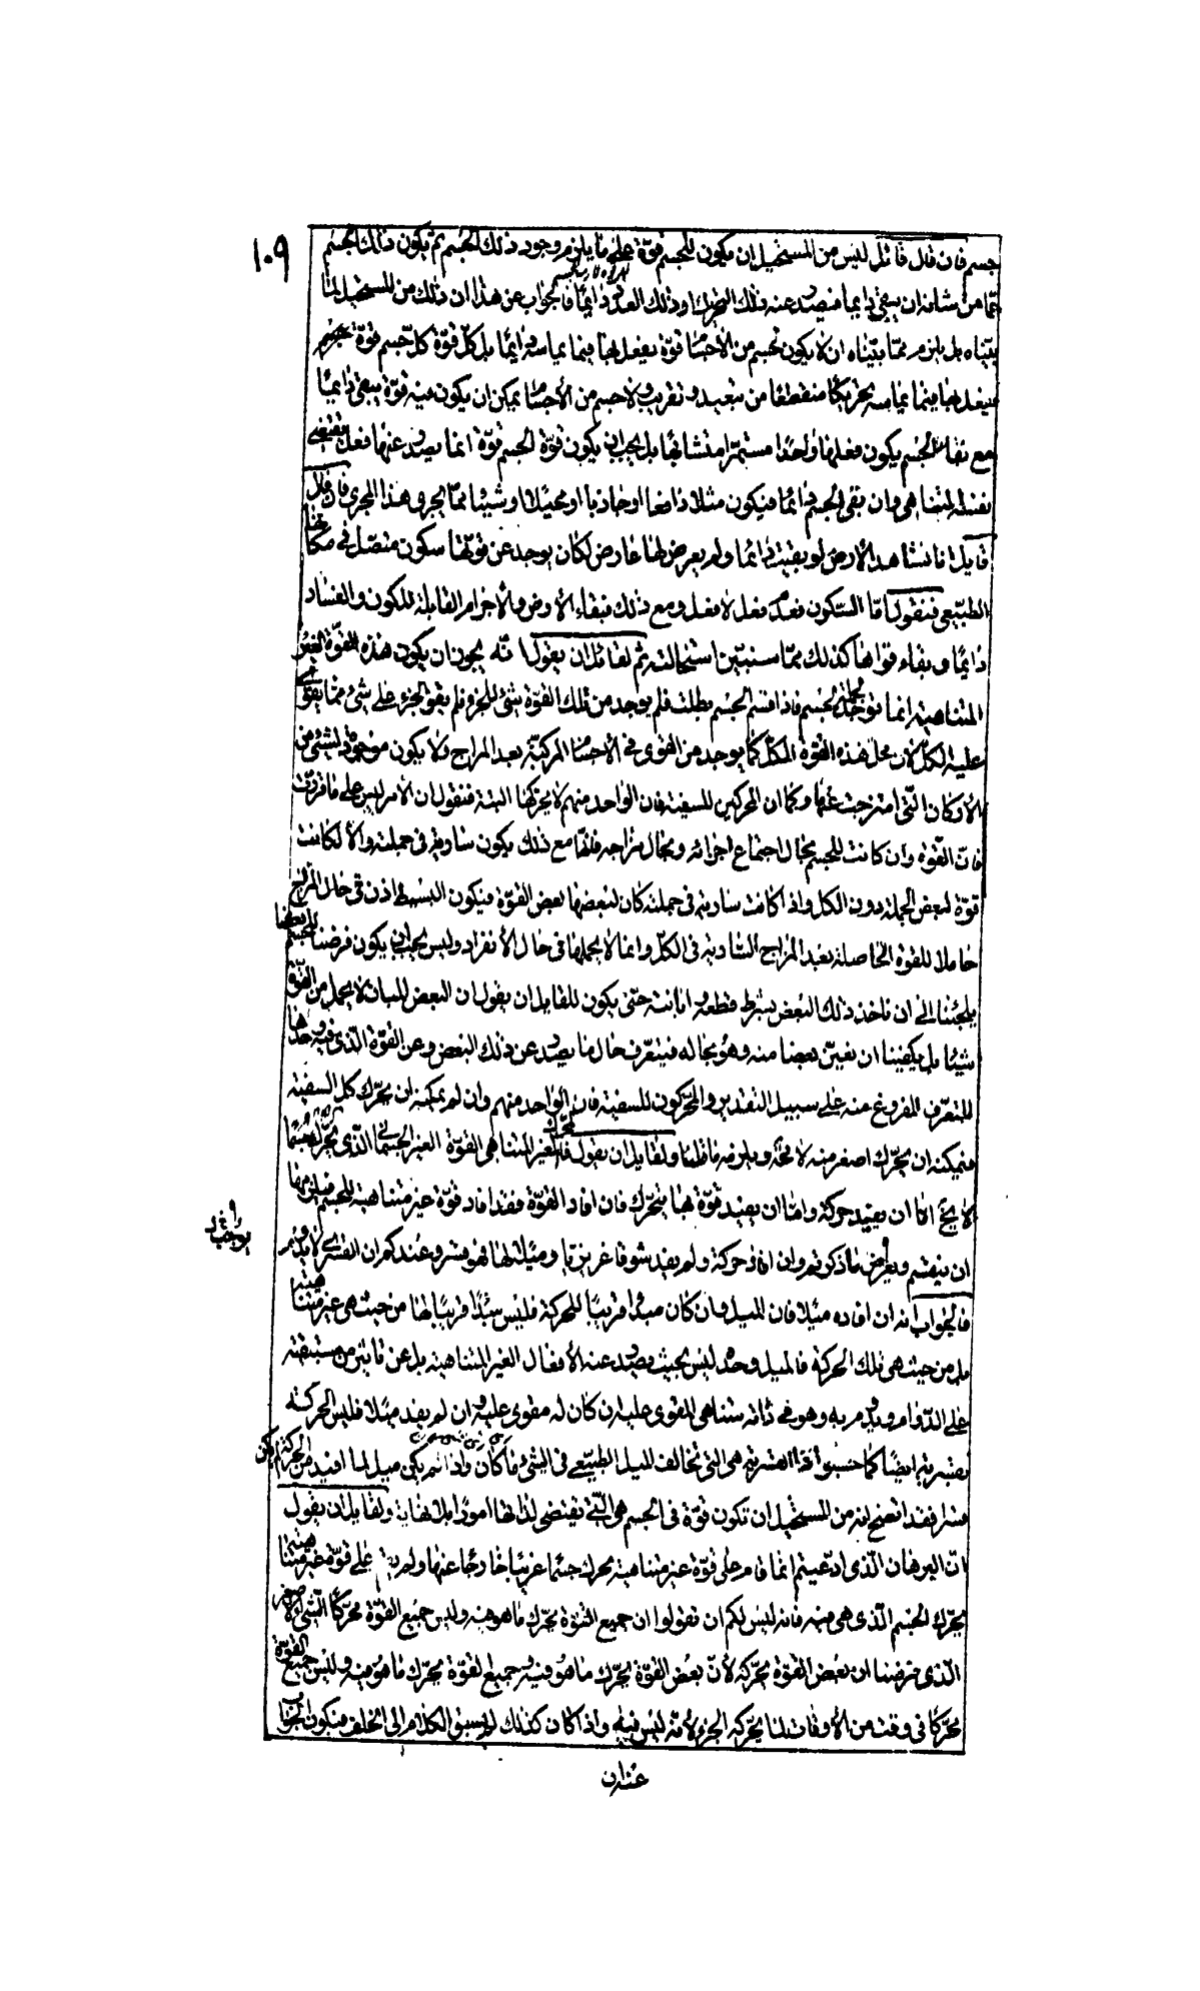 ١٠٩
جسم فان قال قائل ليس من المستحيل ان يكون للجسم قوة على ما يلزم وجود ذلك الجسم ثم يكون ذلك الجسم
مما من شانه ان يبقى دايما فيصدر عنه ذلك التحريك او ذلك العدد دايما فالجواب عن هذا ان ذلك من المستحيل لما
بيناه بل يلزم مما بيناه ان لا يكون لجسم من الاجسام قوة يفعل بها فيما يماسه دايما بل كل قوة كل جسم قوة
فيفعل بها فيما يماسه تحريكا منقطعا من تبعيد وتقريب ولا جسم من الاجسام يمكن ان يكون فيه قوة يبقى دايما
مع بقاء الجسم يكون فعلها واحدا مستمرا متشابها بل يجب ان يكون قوة الجسم قوة انما يصدر عنها فعل يقتضى
بفعل المتناهى وان بقى الجسم دايما فيكون مثلا دافعا او جاذبا او محيلا او شيئا مما يجرى هذا المجرى فان قال
قايل انا نشاهد الارض لو بقيت دايما ولم يعرض لها عارض لكان يوجد عن قوتها سكون متصل فى مكانها
الطبيعى فنقول اما السكون فعدم فعل لا فعل ومع ذلك فبقاء الارض والاجرام القابلة للكون والفساد
دايما وبقاء قواها كذلك مما سنبين استحالته ثم لقائل ان يقول انه يجوز ان يكون هذه القوة الغير
المتناهية انما توجد لجملة الجسم فاذا قسم الجسم بطلت فلم يوجد من تلك القوة شئ للجزء فلم يقو الجزء على شئ مما يقوى
عليه الكل لان محل هذه القوة الكل كما يوجد من القوى فى الاجسام المركبة بعد المزاج ولا يكون موجودة لشئ من
الاركان التى امتزجت عنها وكما ان المحركين للسفينة فان الواحد منهم لا يحركها البتة فنقول ان الامر ليس على ما فرضت
فان القوة وان كانت للجسم بحال اجتماع اجزائه وبحال مزاجه فانها مع ذلك يكون سارية فى جملته والا لكانت
قوة لبعض الجملة دون الكل واذا كانت سارية فى جملته كان لبعضها بعض القوة فيكون البسيط اذن فى حال المزاج
حاملا للقوة الحاصلة بعد المزاج السارية فى الكل وانما لا يحملها فى حال الانفراد وليس يجب ان يكون فرضنا للجسم بعضا
يلجئنا الى ان ناخذ ذلك البعض بشرط قطعه وابانته حتى يكون للقايل ان يقول ان البعض المبان لا يحمل من القوة
شيئا بل يكفينا ان نعين بعضا منه وهو بحاله فيتعرف حال ما يصدر عن ذلك البعض وعن القوة الذى فيه وحدها
للتعرف المفروغ منه على سبيل التقدير والمحركون للسفينة فان الواحد منهم وان لم يمكنه ان يحرك كل السفينة
فيمكنه ان يحرك اصغر منه لا محة ويلزم ما قلنا ولقايل ان يقول فالمحرك الغير المتناهى القوة الغير الجسمانى الذى يحرك جسما
لا يخ اما ان يفيد حركة واما ان يفيد قوة بها يتحرك فان افاد القوة فقد افاد قوة غير متناهية للجسم فيلزمها
ان ينقسم ويعرض ما ذكرتم وان افاد حركة ولم يفد شوقا غريزيا وميلا لها فهو قسر وعندكم ان القسرى لا يدوم
فالجواب انه ان افاده ميلا فان الميل وان كان مبدا قريبا للحركة فليس مبدا قريبا لها من حيث هى غير متناهية
بل من حيث هى تلك الحركة فالميل وحده ليس بحيث يصدر عنه الافعال الغير المتناهية بل عن تاثير من مستبقيه
على الدوام ويدومر به وهو فى ذاته متناهى القوى عليه ان كان له مقوى عليه وان لم يفد ميلا فليس الحركة
بقسرية ايضا كما حسبوا فان القسرية هى التى تخالف الميل الطبيعى فى الشئ ما كان واذا لم يكن ميل لما افيد من الحركة لم يكن
قسرا فقد اتضح انه من المستحيل ان تكون قوة فى الجسم هى التى تقتضى لذاتها امورا بلا نهاية ولقايل ان يقول
ان البرهان الذى ادعيتم انما قام على قوة غير متناهية يحرك جسما غريبا خارجا عنها ولم على قوة غير متناهية
يحرك الجسم الذى هى فيه فانه ليس لكم ان تقولوا ان جميع القوة يحرك ما هو فيه وليس جميع القوة محركا الشئ الاصغر
الذى فرضنا ان بعض القوة يحركه لان بعض القوة يحرك ما هو فيه وجميع القوة يحرك ما هو فيه وليس جميع القوة
محركا فى وقت من الاوقات لما يحركه الجزء لانه ليس فيه واذا كان كذلك لم يسبق الكلام الى الخلف فيكون الجواب
عنه ان